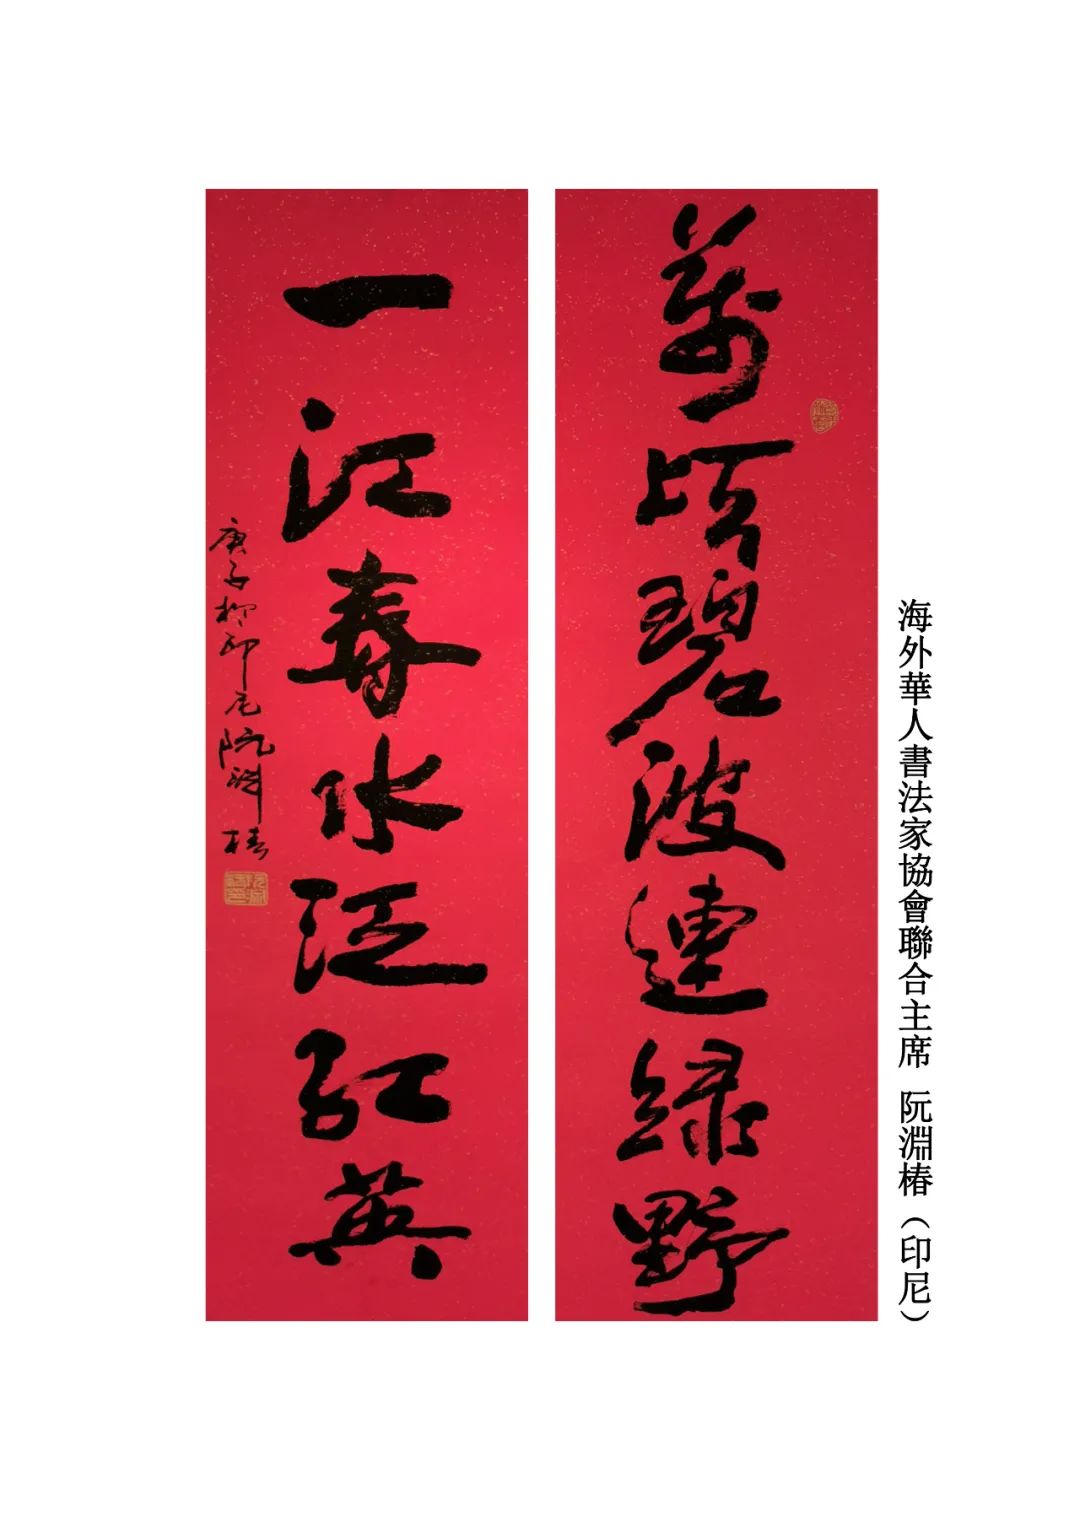 海外華人書法家協會聯合主席 阮淵椿（印尼）
萬頃碧波連绿野
一江春水泛紅英
庚子 印尼阮淵椿